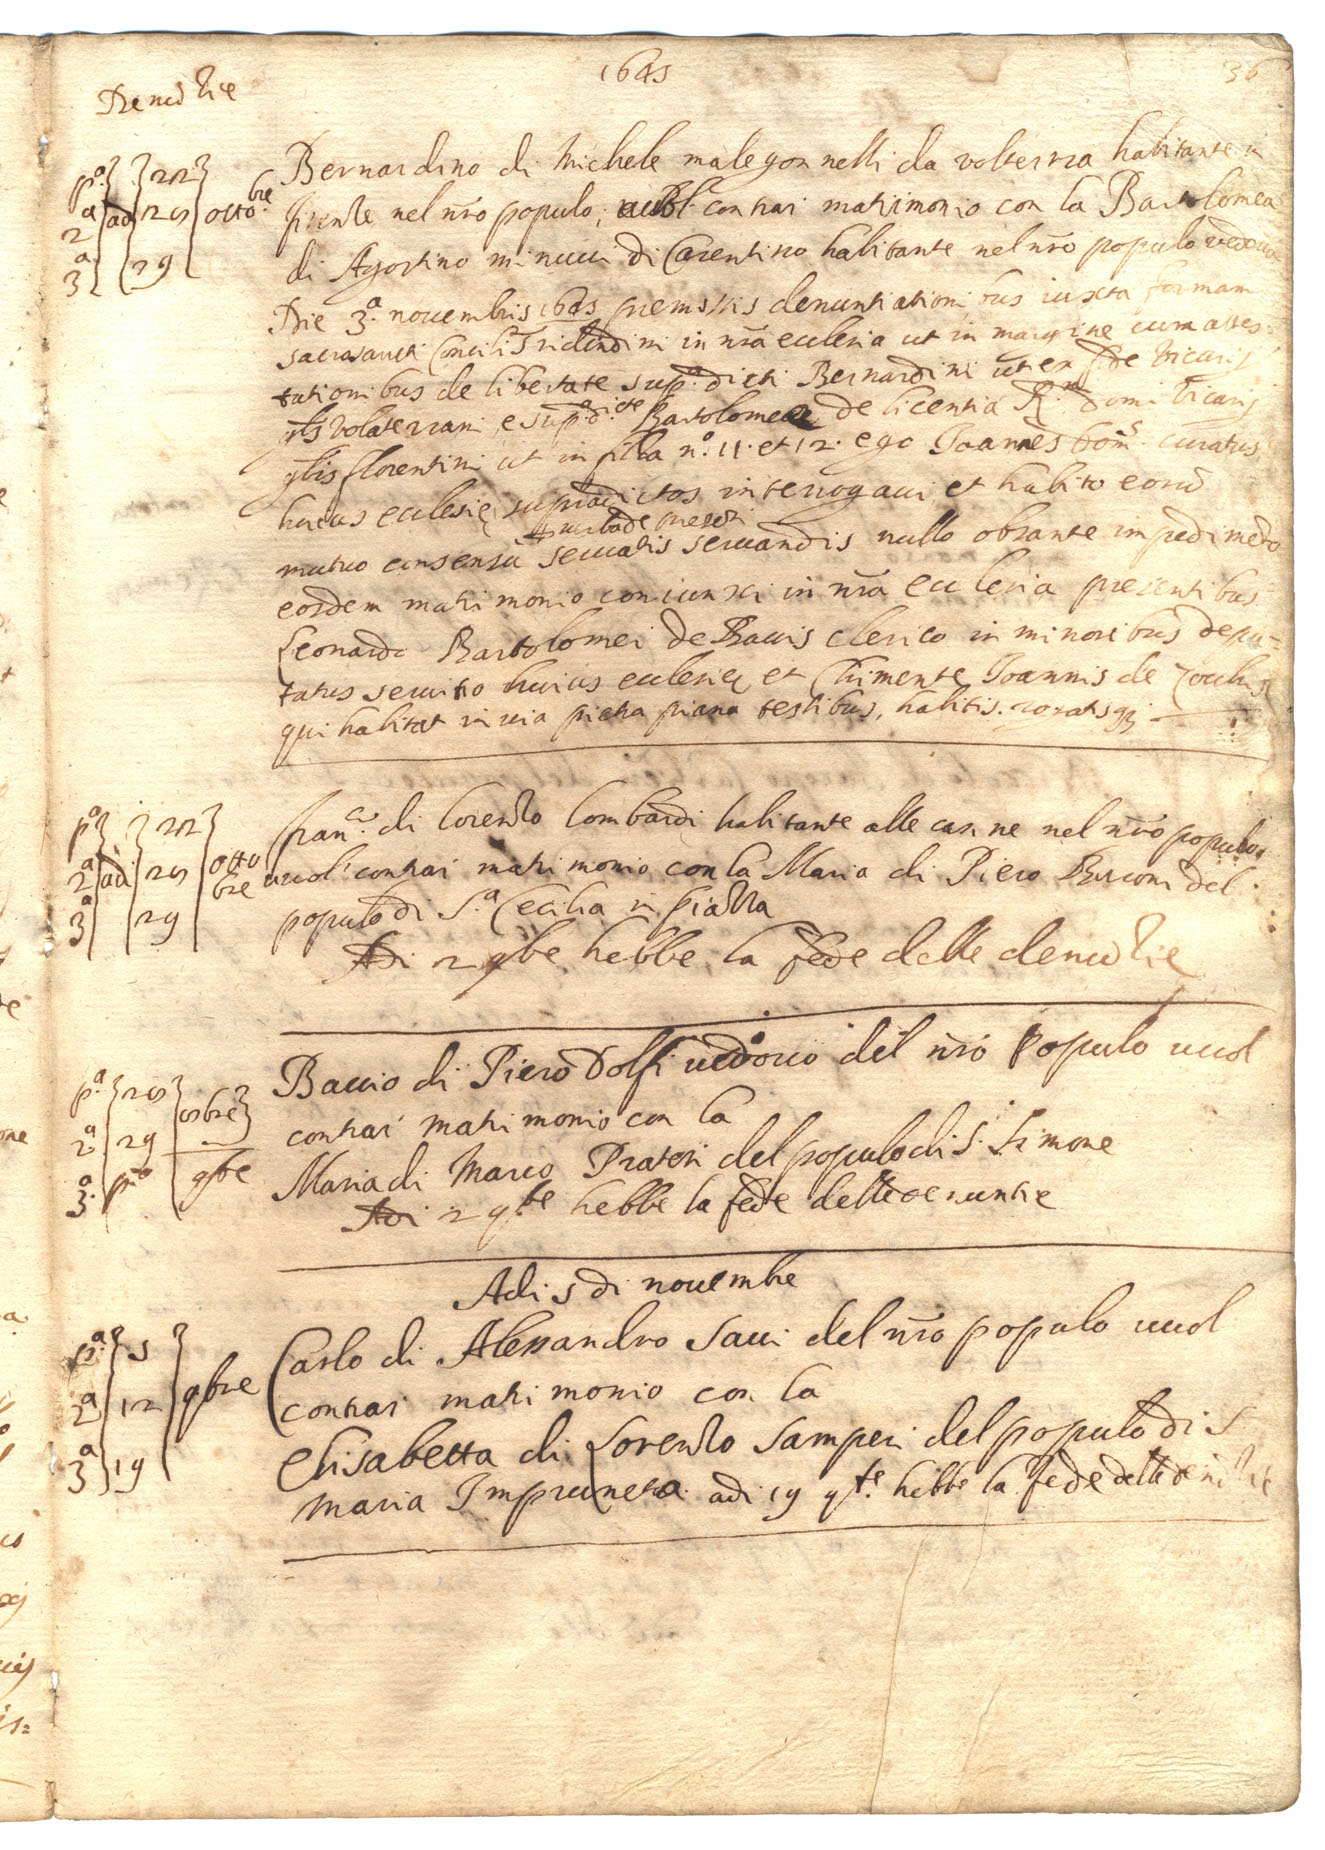 1645
36
Denũtie
pª 22
2ª adi 28 ottobre
3ª 29
Bernardino di Michele malegonnelli da volterra habitante in
firenze nel nr̃o populo, vuol contrar matrimonio con la Bartolomea
di Agostino minucci di habitante nel nr̃o populo vedova
Die 3ª novembris 1645 premissis denuntiationibus iuxta formam
sacrosancti Concili Tridentini in nr̃a ecclesia ut in margine cum attes=
tationibus de libertate sup.ª dicti Bernardini ut ex fede Vicarij
gñlis Volaterrani, e sup.ª dicte Bartolomee de licentia R.mi domi Vicarij
gñlis florentini ut in filza nº. 11. et 12. ego Joannes curatus
huius ecclesie supradictos interrogavi et habito eorũ
mutuo consensu per verba de presenti servatis servandis nullo obstante impedimẽto
eosdem matrimonio coniunxi in nr̃a ecclesia presentibus
Leonardo Bartolomei de Bacis clerico in minoribus depu=
tatus servitio huius ecclesie et Chimente Joannis de
qui habitat in via pietra piana testibus, habitis. rogatisq3
pª 22
2ª adi 28 ottobre
3ª 29
fran.co di lorenzo lombardi habitante alle casine nel nr̃o populo
vuol contrar matrimonio con la Maria di Piero del
populo di S.ª Cecilia in piazza
Adi 2 9bre hebbe la fede delle denũtie
pª 28 8bre
2ª 29
3ª pº 9bre
Baccio di Piero Dolfi vedovo del nr̃o Populo vuol
contrar matrimonio con la
Maria di Marco Pratesi del populo di S. Simone
Adi 2 9bre hebbe la fede delle denuntie
Adi 5 di novembre
pª 5
2ª 12 9bre
3ª 19
Carlo di Alessandro Savi del nr̃o populo vuol
contrar matrimonio con la
Elisabetta di Lorenzo Samperi del populo di S
Maria Impruneta adi 19 9bre hebbe la fede delle denũtie